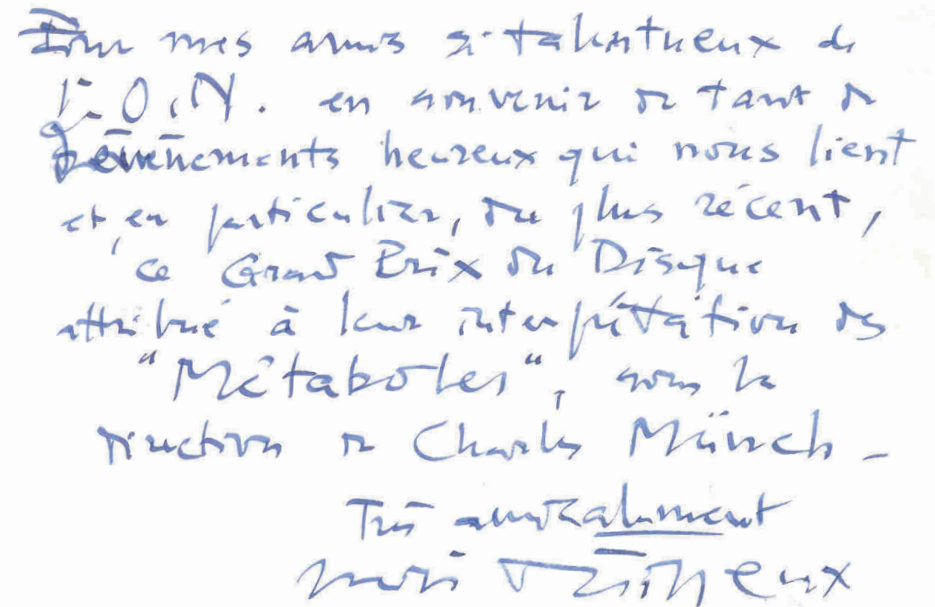 Pour mes amis si talentueux de
l'O.N. en souvenir de tant de
évènements heureux qui nous lient
et, en particulier, du plus récent,
ce Grand Prix du Disque
attribué à leur interprétation des
"Métaboles", sous la
direction de Charles Münch -
Très amicalement
Dutilleux